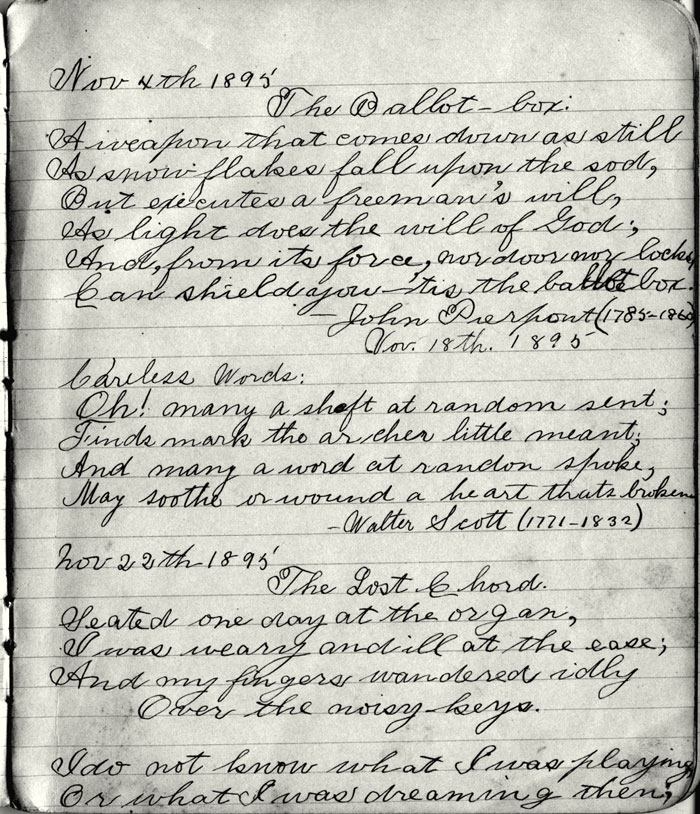 Nov 4th 1895
The Ballot-box:
A weapon that comes down as still
As snow flakes fall upon the sod,
But executes a freeman's will,
As light does the will of God;
And, from its force, nor door nor locks,
Can shield you—'tis the ballot box.
—John Pierpont (1785-1866)
Nov. 18th. 1895
Careless Words:
Oh! many a shaft at random sent;
Finds mark tho archer little meant;
And many a word at randon spoke,
May soothe or wound a heart thats broken
-Walter Scott (1771-1832)
Nov 22th 1895
The Lost Chord.
Seated one day at the organ,
I was weary and ill at the ease;
And my fingers wandered idly
Over the noisy keys.
I do not know what I was playing
Or what I was dreaming then;